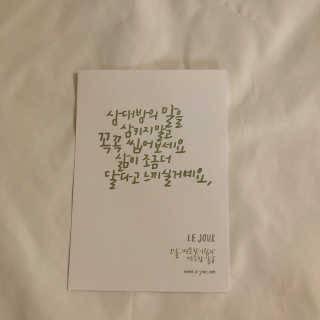 상대방의 말을
삼키지말고
꼭꼭 씹어보세요
삶이 조금더
달다고 느끼실거예요,
LE JOUR